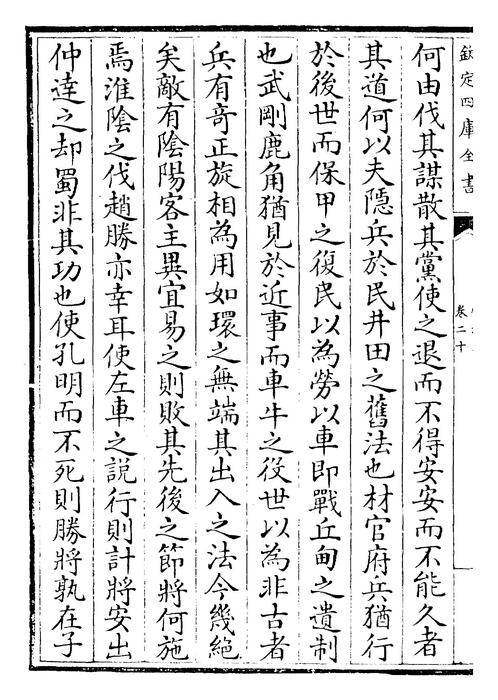 欽定四庫全書
卷二十
何由伐其謀散其黨使之退而不得安安而不能久者
其道何以夫隱兵於民井田之舊法也材官府兵猶行
於後世而保甲之復民以為勞以車即戰丘甸之遺制
也武剛鹿角猶見於近事而車牛之役世以為非古者
兵有竒正旋相為用如環之無端其出入之法今幾絕
矣敵有陰陽客主異宜易之則敗其先後之節將何施
焉淮陰之伐趙勝亦幸耳使左車之説行則計將安出
仲達之却蜀非其功也使孔明而不死則勝將孰在子